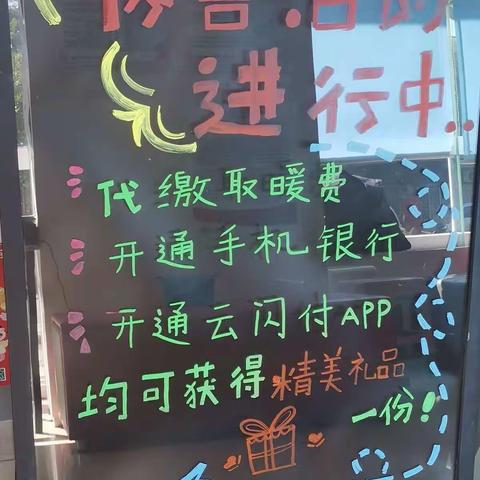 活动
进行中...
代缴取暖费
开通手机银行
开通云闪付APP
均可获得精美礼品
一份!